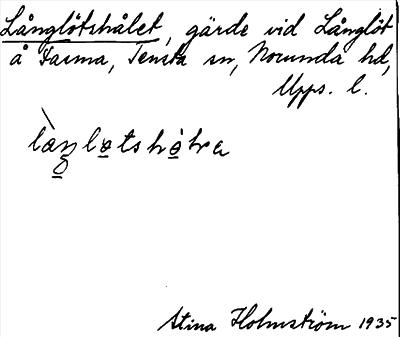 Långlötshålet, gärde vid Långlöt
å Sasma, Tensta sn, Norunda hd,
Upps. l.
Stina Holmström 1935